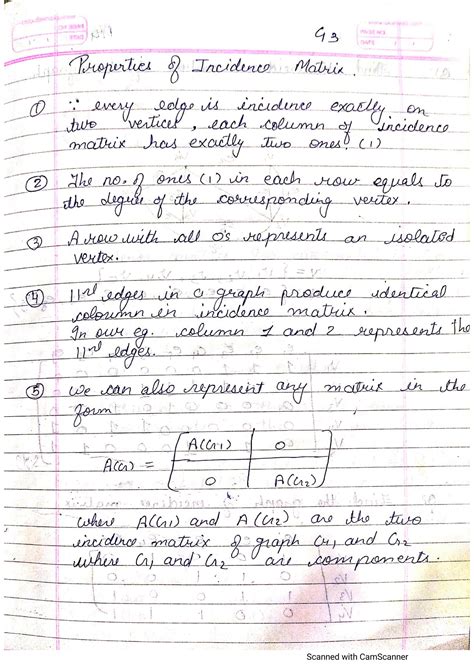 G3
Properties of Incidence Matrix.
① ∵ every edge is incidence exactly on
two vertices, each column of incidence
matrix has exactly two ones (1)
② The no. of ones (1) in each row equals to
the degree of the corresponding vertex.
③ A row with all 0's represents an isolated
vertex.
④ 11rel edges in a graph produce identical
coloumn in incidence matrix.
In our eg. column 1 and 2 represents the
11rel edges.
⑤ we can also represent any matrix in the
form
A(G1) 0
A(G) =
0 A(G2)
where A(G1) and A(G2) are the two
incidence matrix of graph G1 and G2
where G1 and G2 are components.
Scanned with CamScanner